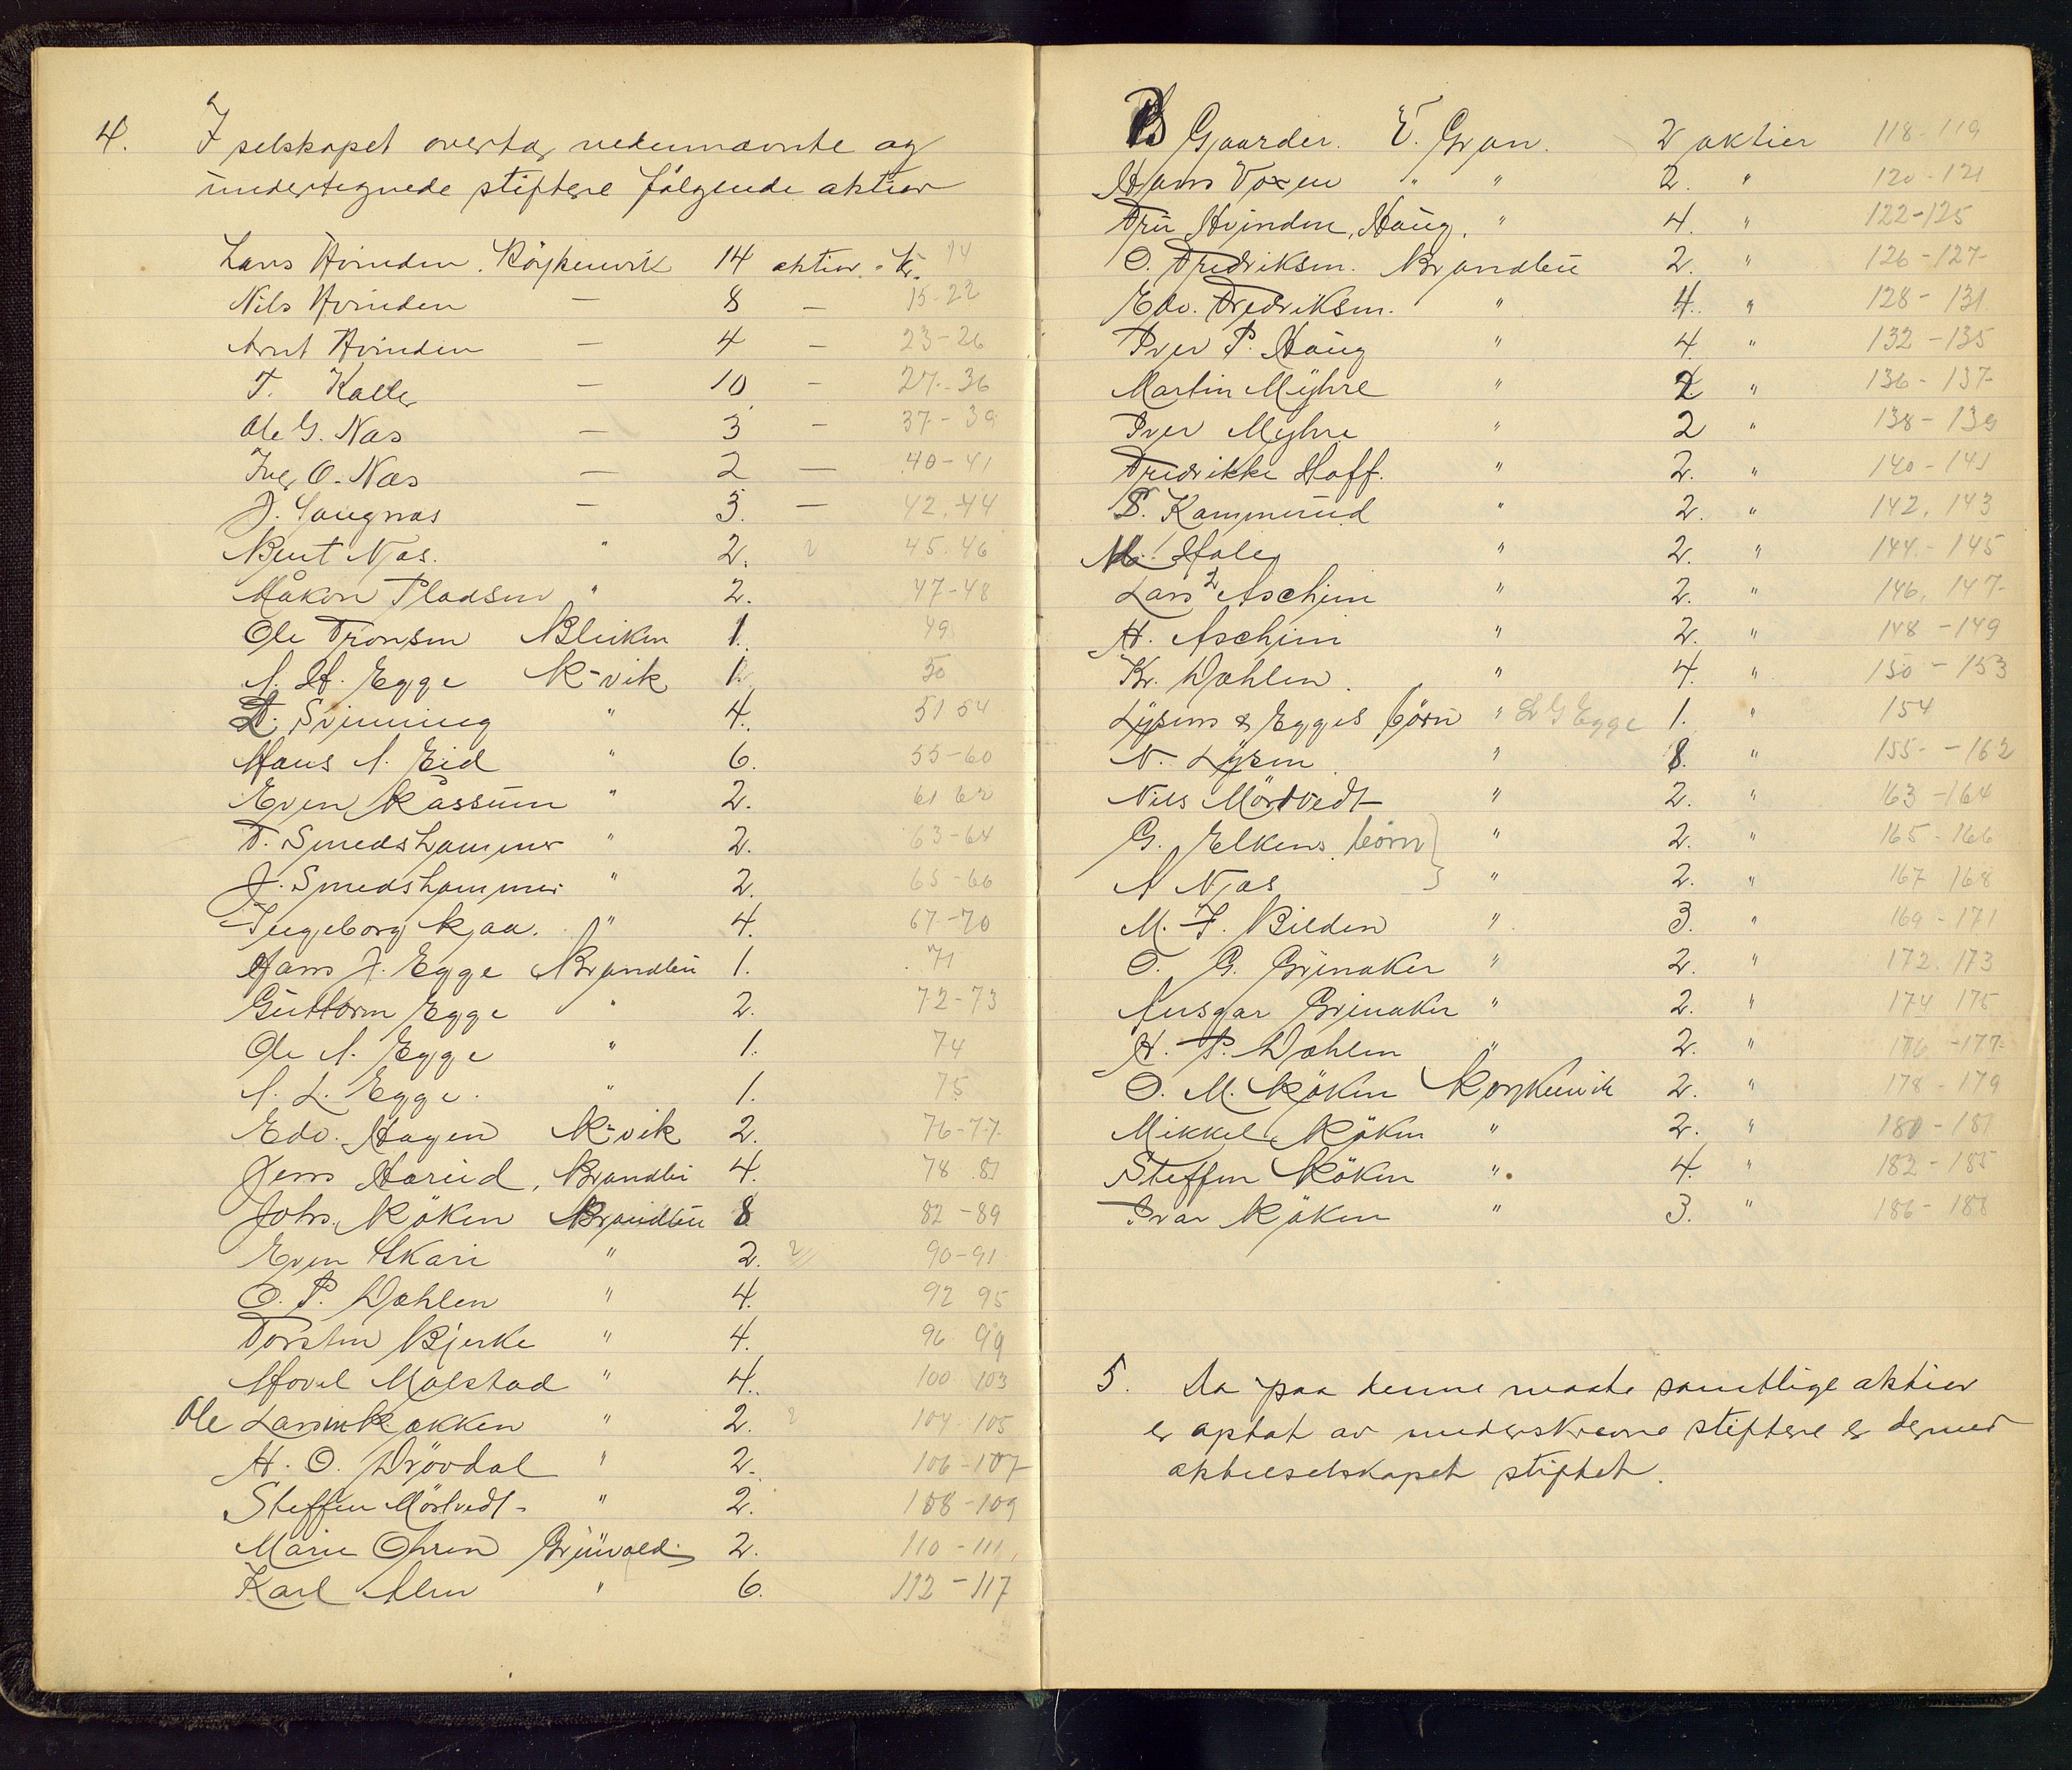 4. I selskapet overtar nedennævnte og
undertegnede stiftere følgende aktier
Lars Hvinden. Röykenvik 14 aktier. Kr. 14
Nils Hvinden — 8 — 15-22
Arnt Hvinden — 4 — 23-26
T. Koller — 10 — 27-36
Ole G. Næs — 3 — 37-39
Iver O. Næs — 2 — 40-41
J. Saugnæs — 3. — 42-44
Bent Næs. " 2. 45.46
Håkon Pladsen " 2. 47-48
Ole Tronsen Bleiken 1. 49
A. H. Egge R-vik 1. 50
Svinning " 4. 51 54
Hans A. Eid " 6. 55-60
Even Råssum " 2. 61 62
T. Smedshammer " 2. 63-64
J. Smedshammer " 2. 65-66
Ingeborg Kjaa. " 4. 67-70
Hans J. Egge Brandbu 1. 71
Guttorm Egge " 2. 72-73
Ole A. Egge " 1. 74
A. L. Egge. " 1. 75
Edv. Hagen R-vik 2. 76-77
Jens Horud, Brandbu 4. 78 81
Johs. Röken Brandbu 8 82-89
Even Skari " 2. 90-91
O. P. Dæhlen " 4. 92 95
Torsten Bjerke " 4. 96 99
Hovel Molstad " 4. 100 103
Ole Larsen Rækken " 2. 104-105
H. O. Drövdal " 2. 106-107
Steffen Mörtvedt " 2. 108-109
Marie Ohren 2. 110-111
Karl Alm " 6. 112-117
B Gaarder. V. Gran. 2 aktier 118-119
Hans Voxen " " 2. " 120-121
Fru Hvinden, Haug. " 4. " 122-125
O. Fredriksen. Brandbu 2. " 126-127
Edv. Fredriksen. " 4. " 128-131
Iver P. Haug " 4. " 132-135
Martin Myhre " 2 " 136-137
Iver Myhre " 2 " 138-139
Fredrikke Hoff. " 2. " 140-141
P. Kammerud " 2. " 142, 143
M. Hole " 2. " 144-145
Lars L Aschim " 2. " 146, 147
H. Aschim " 2. " 148-149
Kr. Dæhlen. " 4. " 150-153
Lysens & Egges börn " L G Egge 1. " 154
N. Lysen " 8. " 155-162
Nils Mörtvedt " 2. " 163-164
G. Elkens börn } " 2. " 165-166
A Næs } " 2. " 167 168
M. I. Bilden " 3. " 169-171
O. G. Grinaker " 2. " 172. 173
Ansgar Grinaker " 2. " 174 175
H. P. Dæhlen " 2. " 176-177
O. M. Röken Röykenvik 2. " 178-179
Mikkel Röken " 2. " 180-181
Steffen Röken " 4. " 182-185
Ivar Röken " 3. " 186-188
5. Da paa denne maate samtlige aktier
er optat av underskrevne stiftere er dermed
aktieselskapet stiftet.